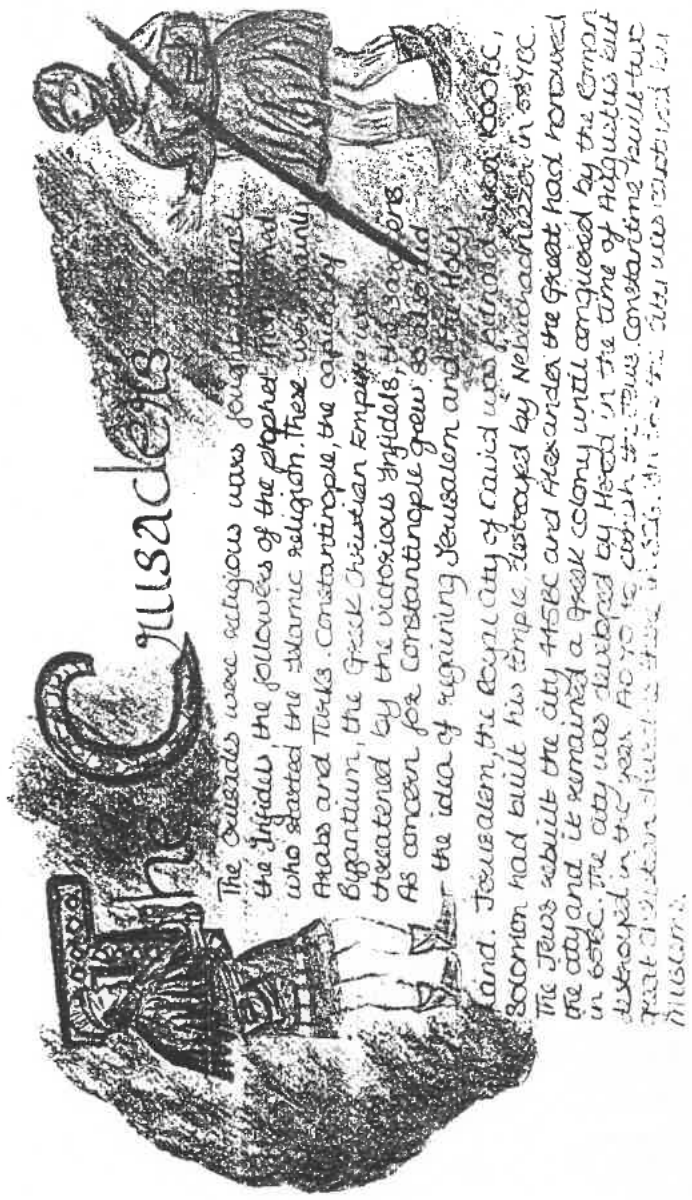 The Crusaders
The Crusades were religious wars fought against
the Infidel, the followers of the prophet Mohammed
who started the Islamic religion. These were mainly
Arabs and Turks. Constantinople, the capital of
Byzantium, the Greek Christian Empire was
threatened by the victorious Infidels, the Saracens.
As concern for Constantinople grew so also did
the idea of regaining Jerusalem and the Holy
Land. Jerusalem, the Royal City of David was founded circa 1000BC,
Solomon had built his temple, destroyed by Nebuchadnezzer in 587BC.
The Jews rebuilt the city 445BC and Alexander the Great had honoured
the city and it remained a Greek colony until conquered by the Roman
in 65BC. The city was developed by Herod in the time of Augustus but
destroyed in the year AD 70 to the Jews. Constantine built two
great Christian churches there in 326. the city was captured by
Muslims.